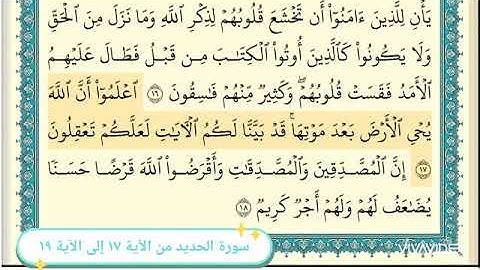 يَأْنِ لِلَّذِينَ ءَامَنُوٓاْ أَن تَخْشَعَ قُلُوبُهُمْ لِذِكْرِ ٱللَّهِ وَمَا نَزَلَ مِنَ ٱلْحَقِّ
وَلَا يَكُونُواْ كَٱلَّذِينَ أُوتُواْ ٱلْكِتَٰبَ مِن قَبْلُ فَطَالَ عَلَيْهِمُ
ٱلْأَمَدُ فَقَسَتْ قُلُوبُهُمْۖ وَكَثِيرٌ مِّنْهُمْ فَٰسِقُونَ ١٦ ٱعْلَمُوٓاْ أَنَّ ٱللَّهَ
يُحْيِ ٱلْأَرْضَ بَعْدَ مَوْتِهَاۚ قَدْ بَيَّنَّا لَكُمُ ٱلْأٓيَٰتِ لَعَلَّكُمْ تَعْقِلُونَ
١٧ إِنَّ ٱلْمُصَّدِّقِينَ وَٱلْمُصَّدِّقَٰتِ وَأَقْرَضُواْ ٱللَّهَ قَرْضًا حَسَنًا
يُضَٰعَفُ لَهُمْ وَلَهُمْ أَجْرٌ كَرِيمٌ ١٨
سورة الحديد من الآية ١٧ إلى الآية ١٩